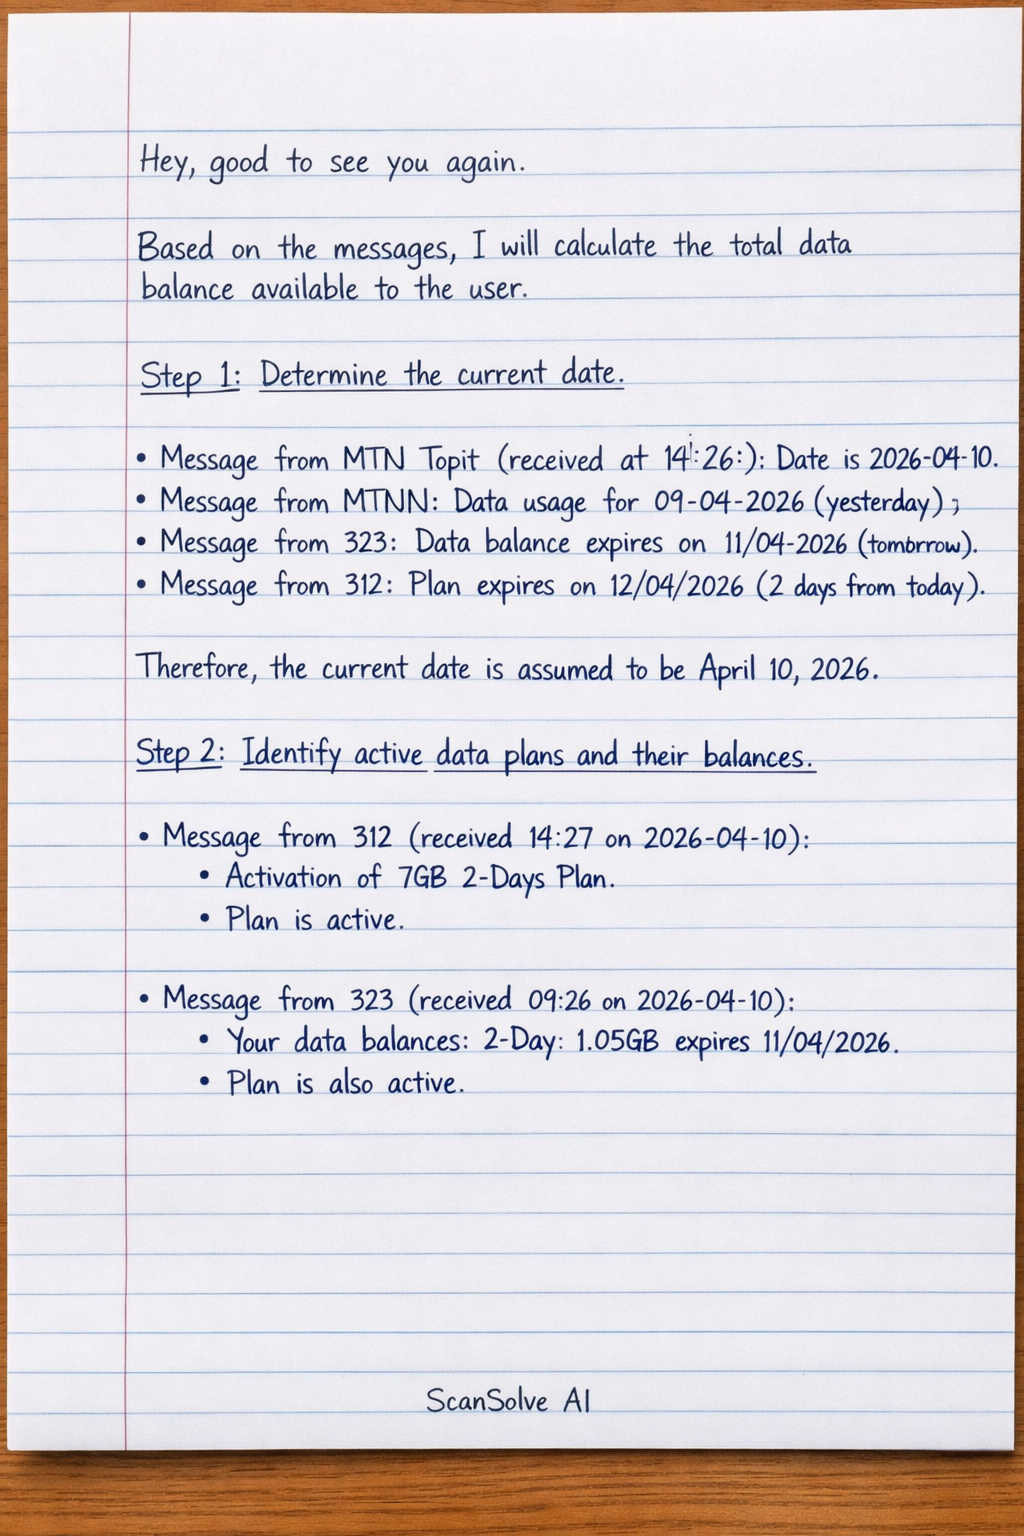 Hey, good to see you again.
Based on the messages, I will calculate the total data
balance available to the user.
Step 1: Determine the current date.
• Message from MTN Topit (received at 14:26:): Date is 2026-04-10.
• Message from MTNN: Data usage for 09-04-2026 (yesterday);
• Message from 323: Data balance expires on 11/04-2026 (tombrrow).
• Message from 312: Plan expires on 12/04/2026 (2 days from today).
Therefore, the current date is assumed to be April 10, 2026.
Step 2: Identify active data plans and their balances.
• Message from 312 (received 14:27 on 2026-04-10):
• Activation of 7GB 2-Days Plan.
• Plan is active.
• Message from 323 (received 09:26 on 2026-04-10):
• Your data balances: 2-Day: 1.05GB expires 11/04/2026.
• Plan is also active.
ScanSolve AI